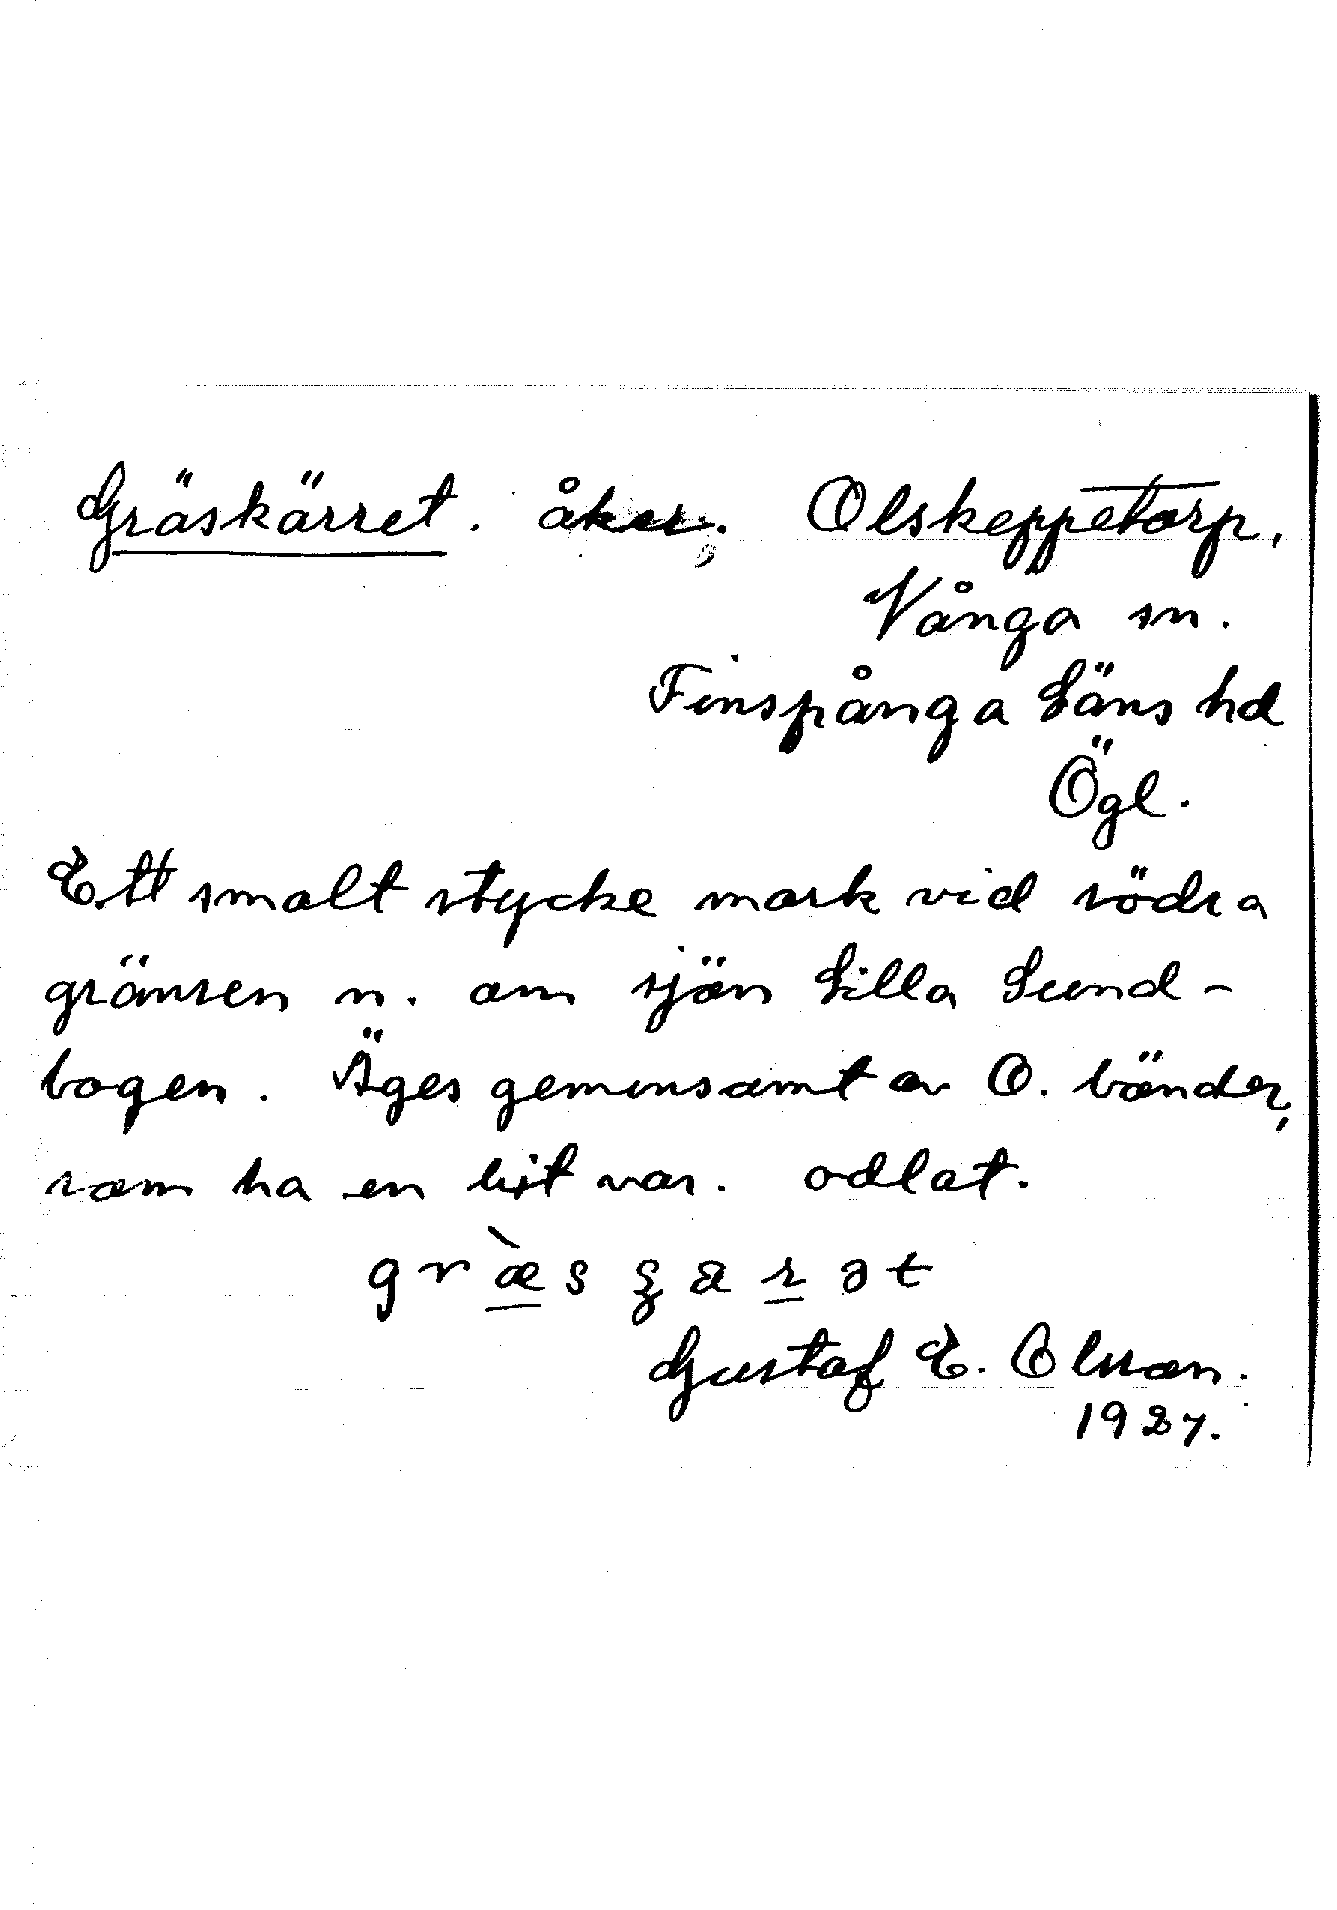 Gräskärret. åker. Olskeppetorp,
Vånga sn.
Finspånga Läns hd
Ögl.
Ett smalt stycke mark vid södra
gränsen n. om sjön Lilla Lund-
bogen. Äges gemensamt av O. bönder,
som ha en bit var. odlat.
græ̀sʒarət
Gustaf E. Olsson.
1927.